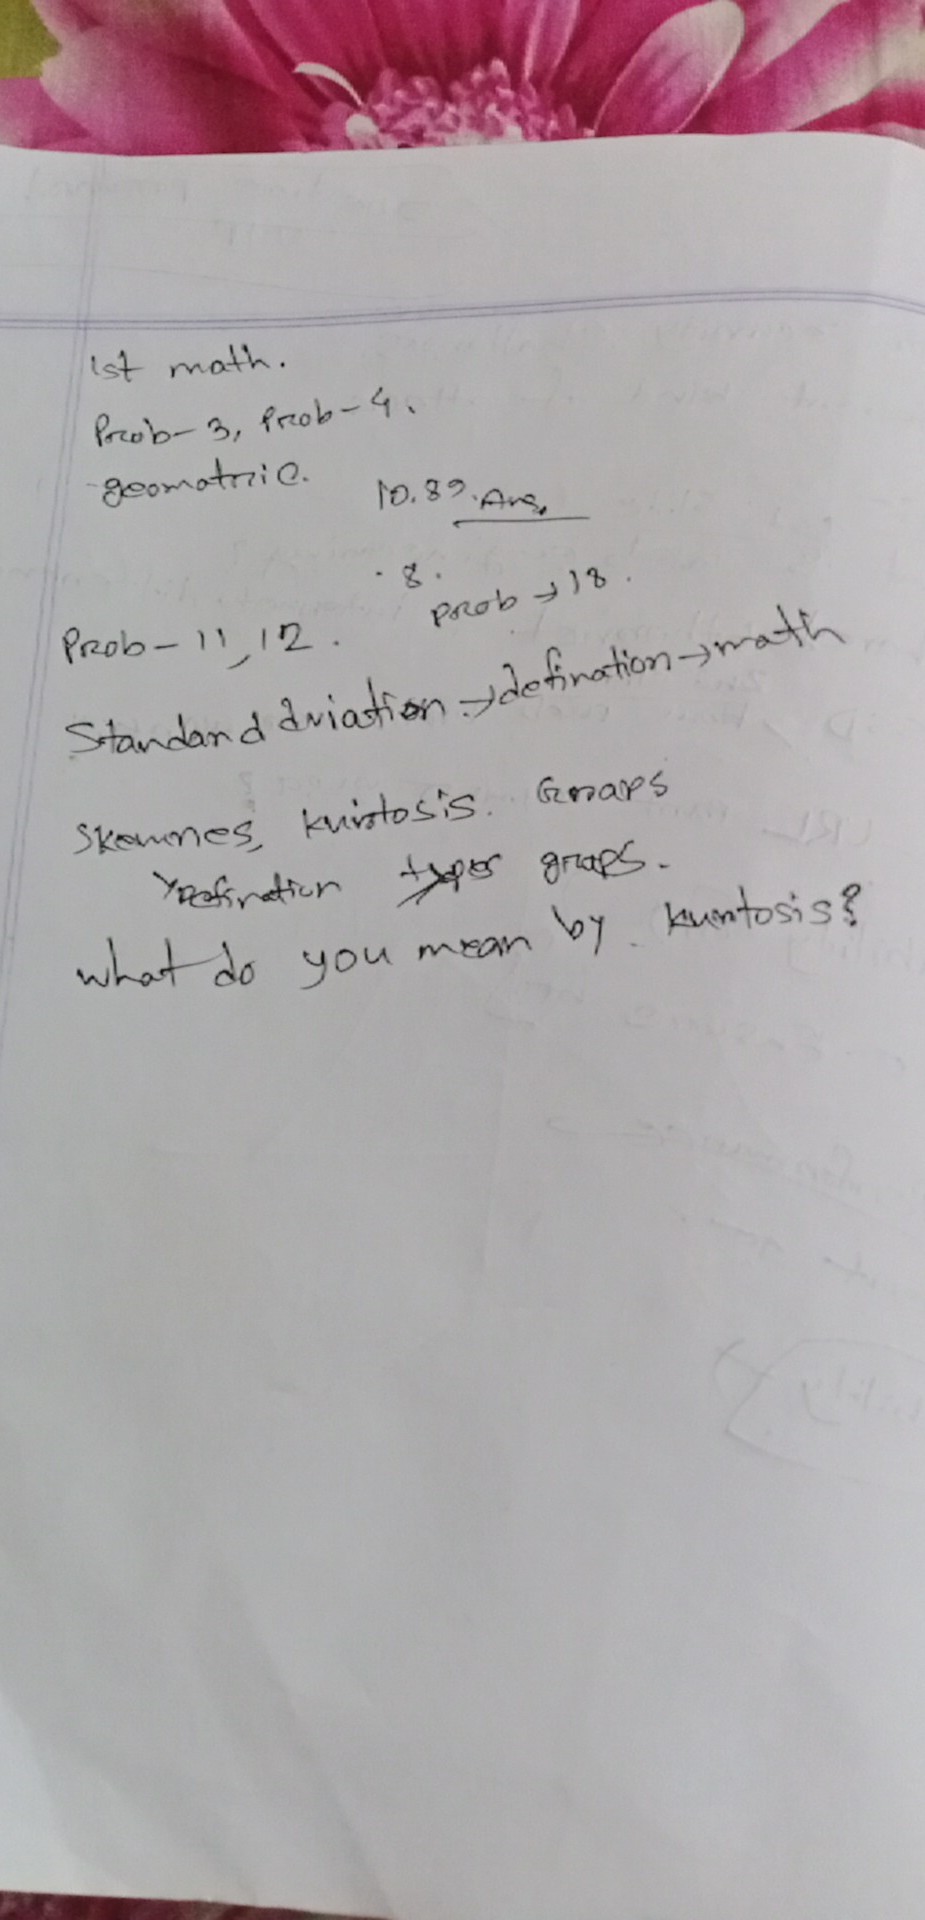 1st math.
Prob-3, Prob-4.
geomatric.
10.89. Ans.
.8.
Prob → 18.
Prob-11, 12.
Standard dviation → defination → math
Skewnes, kurtosis. Graps
Defination types graps.
what do you mean by kurtosis?